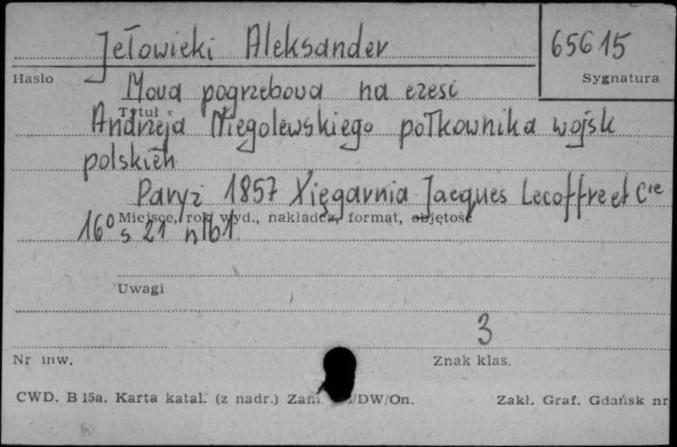 Jełowicki Aleksander 65615
Hasło Sygnatura
Mowa pogrzebowa na cześć
Tytuł
Andrzeja Niegolewskiego połkownika wojsk
polskich
Paryż 1857 Xięgarnia Jacques Lecoffre et Cie
Miejsce, rok wyd., nakładca, format, objętość
16° s 21 nlb 1.
Uwagi
3
Nr inw. Znak klas.
CWD. B 15a. Karta katal. (z nadr.) /DW/On. Zakł. Graf. Gdańsk nr